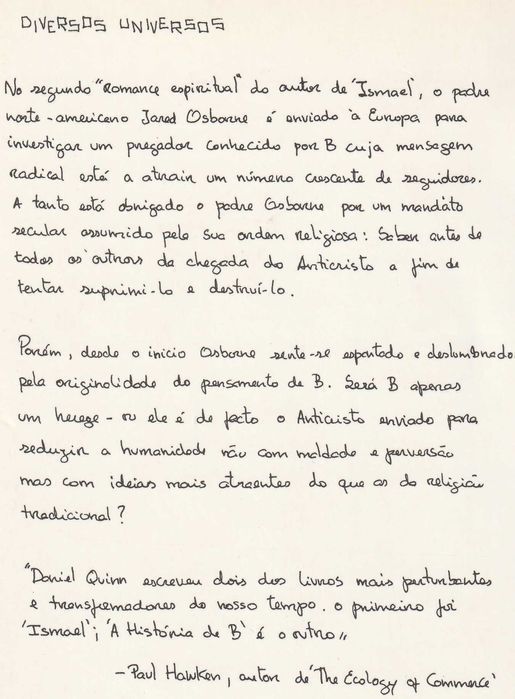 DIVERSOS UNIVERSOS
No segundo "Romance espiritual" do autor de 'Ismael', o padre
norte-americano Jared Osborne é enviado à Europa para
investigar um pregador conhecido por B cuja mensagem
radical está a atrair um número crescente de seguidores.
A tanto está obrigado o padre Osborne por um mandato
secular assumido pela sua ordem religiosa: Saber antes de
todos os outros da chegada do Anticristo a fim de
tentar suprimi-lo e destruí-lo.
Porém, desde o início Osborne sente-se espantado e deslumbrado
pela originalidade do pensamento de B. Será B apenas
um herege - ou ele é de facto o Anticristo enviado para
seduzir a humanidade não com maldade e perversão
mas com ideias mais atraentes do que as da religião
tradicional?
"Daniel Quinn escreveu dois dos livros mais perturbantes
e transformadores do nosso tempo. o primeiro foi
'Ismael'; 'A História de B' é o outro"
- Paul Hawken, autor de 'The Ecology of Commerce'